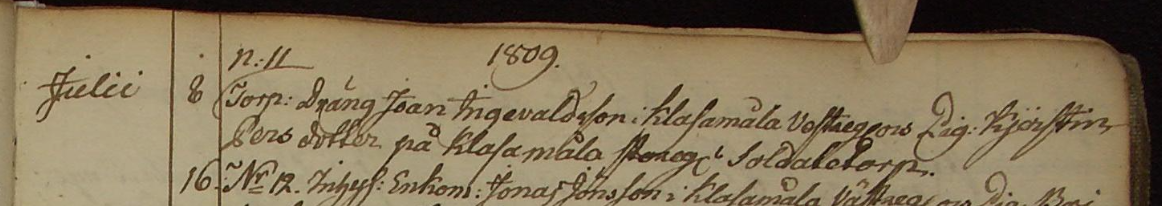 n:11 1809.
Julii 8 Torp: Dräng Joan Ingevaldsson i Klasamåla Vestreg os Pig: Kjörstin
Pers dotter på Klasamåla Soldatetorp.
16. No 12. Inhyss: Enkom: Jonas Jönsson i Klasamåla Västreg os Pig.